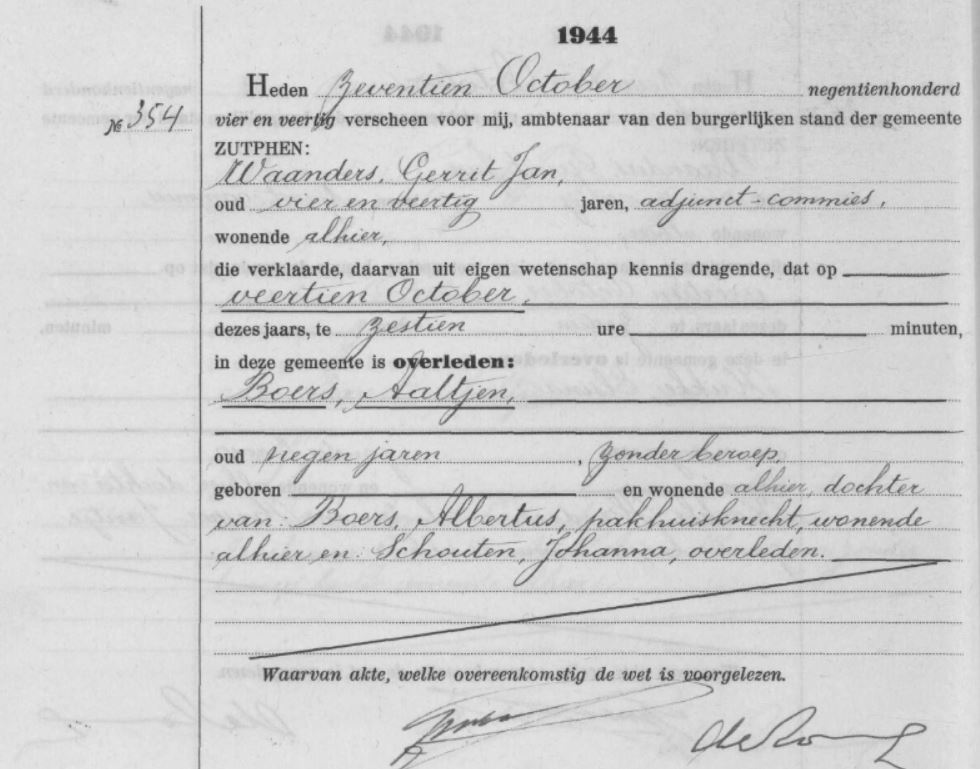 1944
Heden zeventien October negentienhonderd
№ 354 vier en veertig verscheen voor mij, ambtenaar van den burgerlijken stand der gemeente
ZUTPHEN:
Waanders, Gerrit Jan,
oud vier en veertig jaren, adjunct-commies,
wonende alhier,
die verklaarde, daarvan uit eigen wetenschap kennis dragende, dat op
veertien October,
dezes jaars, te zestien ure minuten,
in deze gemeente is overleden:
Boers, Aaltjen,
oud negen jaren, zonder beroep,
geboren en wonende alhier, dochter
van: Boers, Albertus, pakhuisknecht, wonende
alhier en: Schouten, Johanna, overleden.
Waarvan akte, welke overeenkomstig de wet is voorgelezen.